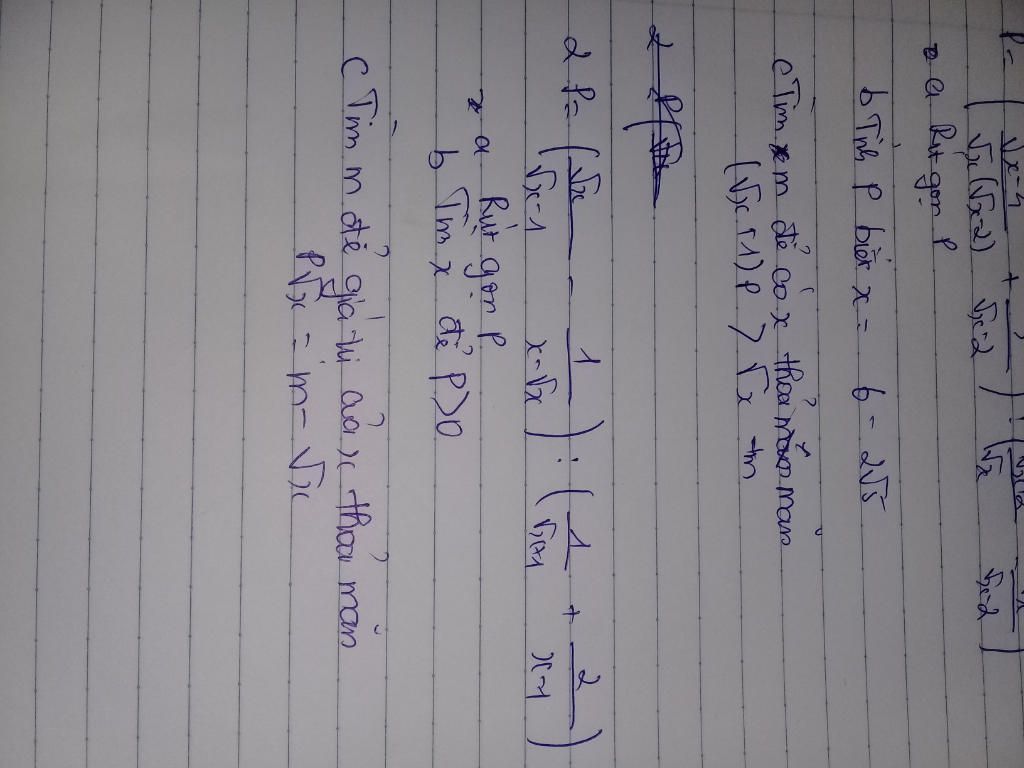 P = ( √x-4 / √x(√x-2) + / √x-2 ) : ( / √x - / √x-2 )
a Rút gọn P
b Tính P biết x = 6 - 2√5
c Tìm m để có x thoả mãn
(√x+1)P > √x +m
2 P = ( √x / √x-1 - 1 / x-√x ) : ( 1 / √x+1 + 2 / x-1 )
a Rút gọn P
b Tìm x để P>0
c Tìm m để giá trị của x thoả mãn
P√x = m - √x